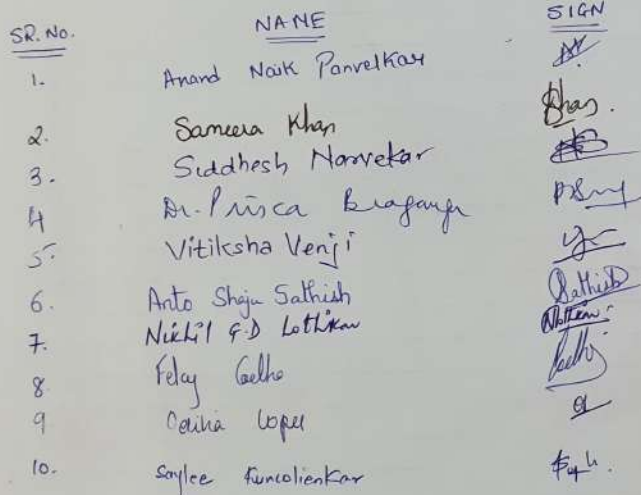 SR. No. NANE SIGN
1. Anand Naik Panvelkar
2. Sameera Khan Khan.
3. Siddhesh Narvekar
4 Dr. Prisca Braganza
5. Vitiksha Venji
6. Anto Shaju Sathish Sathish
7. Nikhil G.D Lotlikar
8 Felcy Coelho
9 Lopes
10. Saylee Kuncolienkar